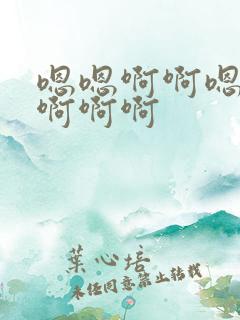 嗯嗯啊啊嗯
啊啊啊
葉心培
未经同意禁止转载